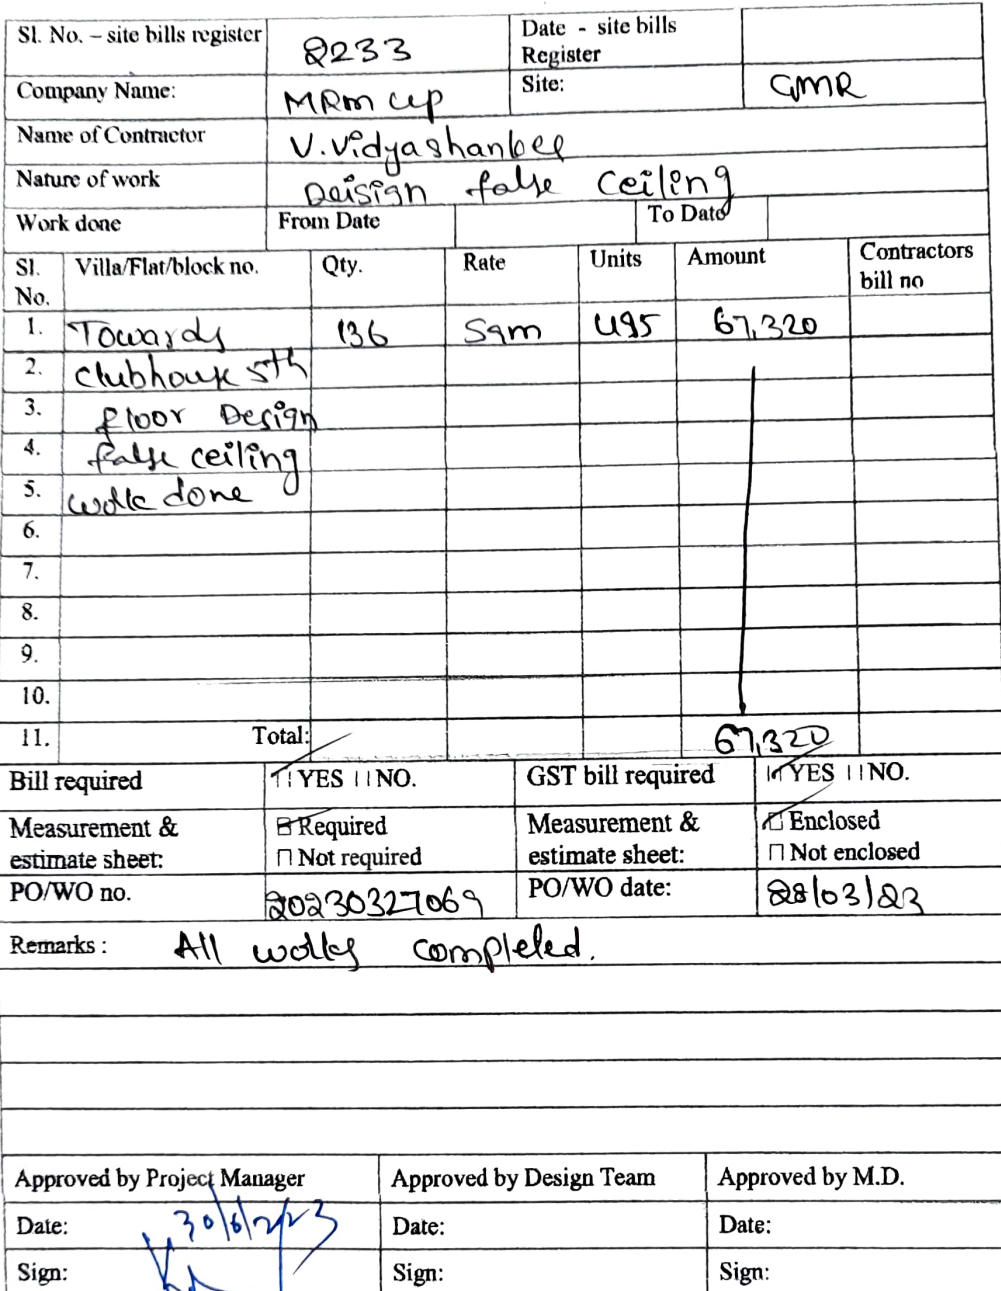 Sl. No. – site bills register 2233 Date - site bills Register
Company Name: MRM LLP Site: GMR
Name of Contractor V. Vidyashankee
Nature of work Deisign false ceiling
Work done From Date To Date
Sl. No. Villa/Flat/block no. Qty. Rate Units Amount Contractors bill no
1. Towards 136 Sqm 495 67,320
2. Clubhouse 5th
3. floor Design
4. false ceiling
5. work done
6.
7.
8.
9.
10.
11. Total: 67,320
Bill required YES NO. GST bill required YES NO.
Measurement & estimate sheet: Required Measurement & estimate sheet: Enclosed
Not required Not enclosed
PO/WO no. 20230327069 PO/WO date: 28/03/23
Remarks : All works completed.
Approved by Project Manager Approved by Design Team Approved by M.D.
Date: 30/6/2023 Date: Date:
Sign: Sign: Sign: